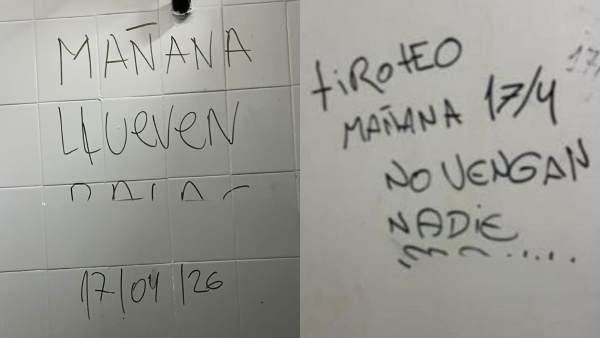 MAÑANA
LLUEVEN
17/04/26
tiROtEO
MAÑANA 17/4
NO VENGAN
NADiE